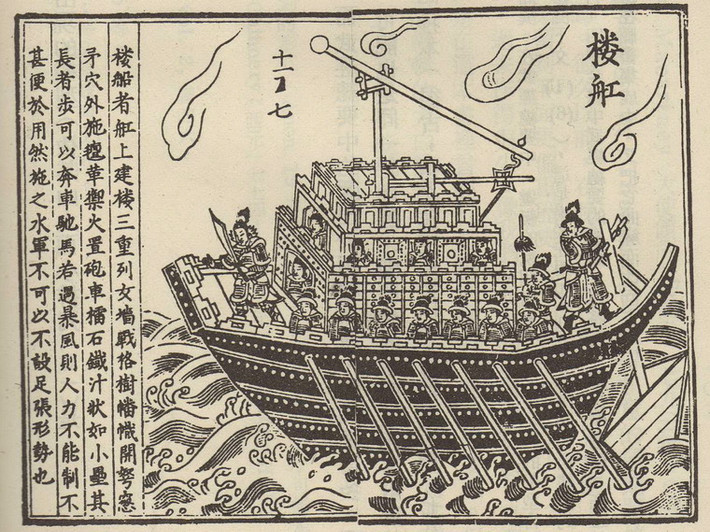 楼舡
楼船者舡上建楼三重列女墻戰格樹幡幟開弩窓
矛穴外施氊革禦火置砲車檑石鐵汁狀如小壘其
長者步可以奔車馳馬若遇暴風則人力不能制不
甚便於用然施之水軍不可以不設足張形勢也